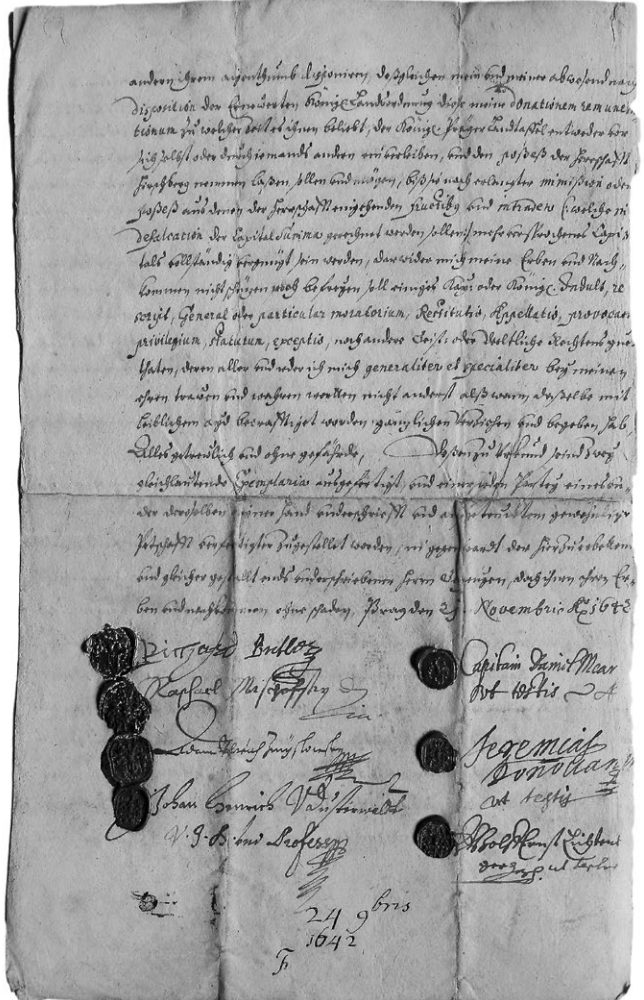 andern ihrem aigenthumb disponiren, deßgleichen mein und meiner abwesend
disposition der Ernewerten Königl. Landtsordnung diese meine donationem remune-
tionum zu welcher Zeit es ihnen beliebt, der Königl. Prager Landtaffel entweder vor
sich selbst oder durch iemands andern einverleiben, und den posseß der Herrschafft
Hirschberg nemmen laßen, sollen und mögen, biß sie nach erlangter immission oder
posseß aus denen der Herrschafft eingehenden fructibus und intraden (: welche in
defalcation der Capital Summa gerechnet werden sollen :) mehr versprochenes Capi-
tals vollständig vergnügt sein werden, darwider mich meine Erben und Nach-
kommen nicht schüzen noch befreyen soll einiges Kays: oder Königl. Indult, re
script, General oder particular moratorium, Restitutio, Appellatio, provocati
privilegium, statutum, exceptio, noch andere Geist: oder Weltliche Rechtens gut-
thaten, deren aller und ieder ich mich generaliter et specialiter bey meinen
ehren trauen und wahren worten nicht anderst alß wann daßelbe mit
leiblichem ayd becräfftiget worden gänzlichen verziehen und begeben hab
Alles getreulich und ohne gefährde, Deßen zu Uhrkund seind zwey
gleichlautende Exemplaria ausgefertigt, und einer ieden Parthey eines un-
der derselben eigner Hand underschrifft und gewehnlicher
Petschafft zugestellet worden, in gegenwardt der hierzu erbettenen
und gleicher gestallt underschriebener Herrn Zeugen, doch ihnen ihren Er-
ben und nachkommen ohne schaden, Prag den Novembris Ao 1642
Richard Butler
Raphael Mischoffsky
Adam
Johan Henrich V
V. J. D. und Professor
Capitain Daniel Mear
ut testis
Jeremias
Donovan
ut testis
Wolf Ernst
ut testis
24 9bris
1642
F